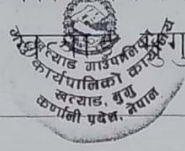 खत्याड गाउँपालिका
गाउँ कार्यपालिकाको कार्यालय
खत्याड, मुगु
कर्णाली प्रदेश, नेपाल